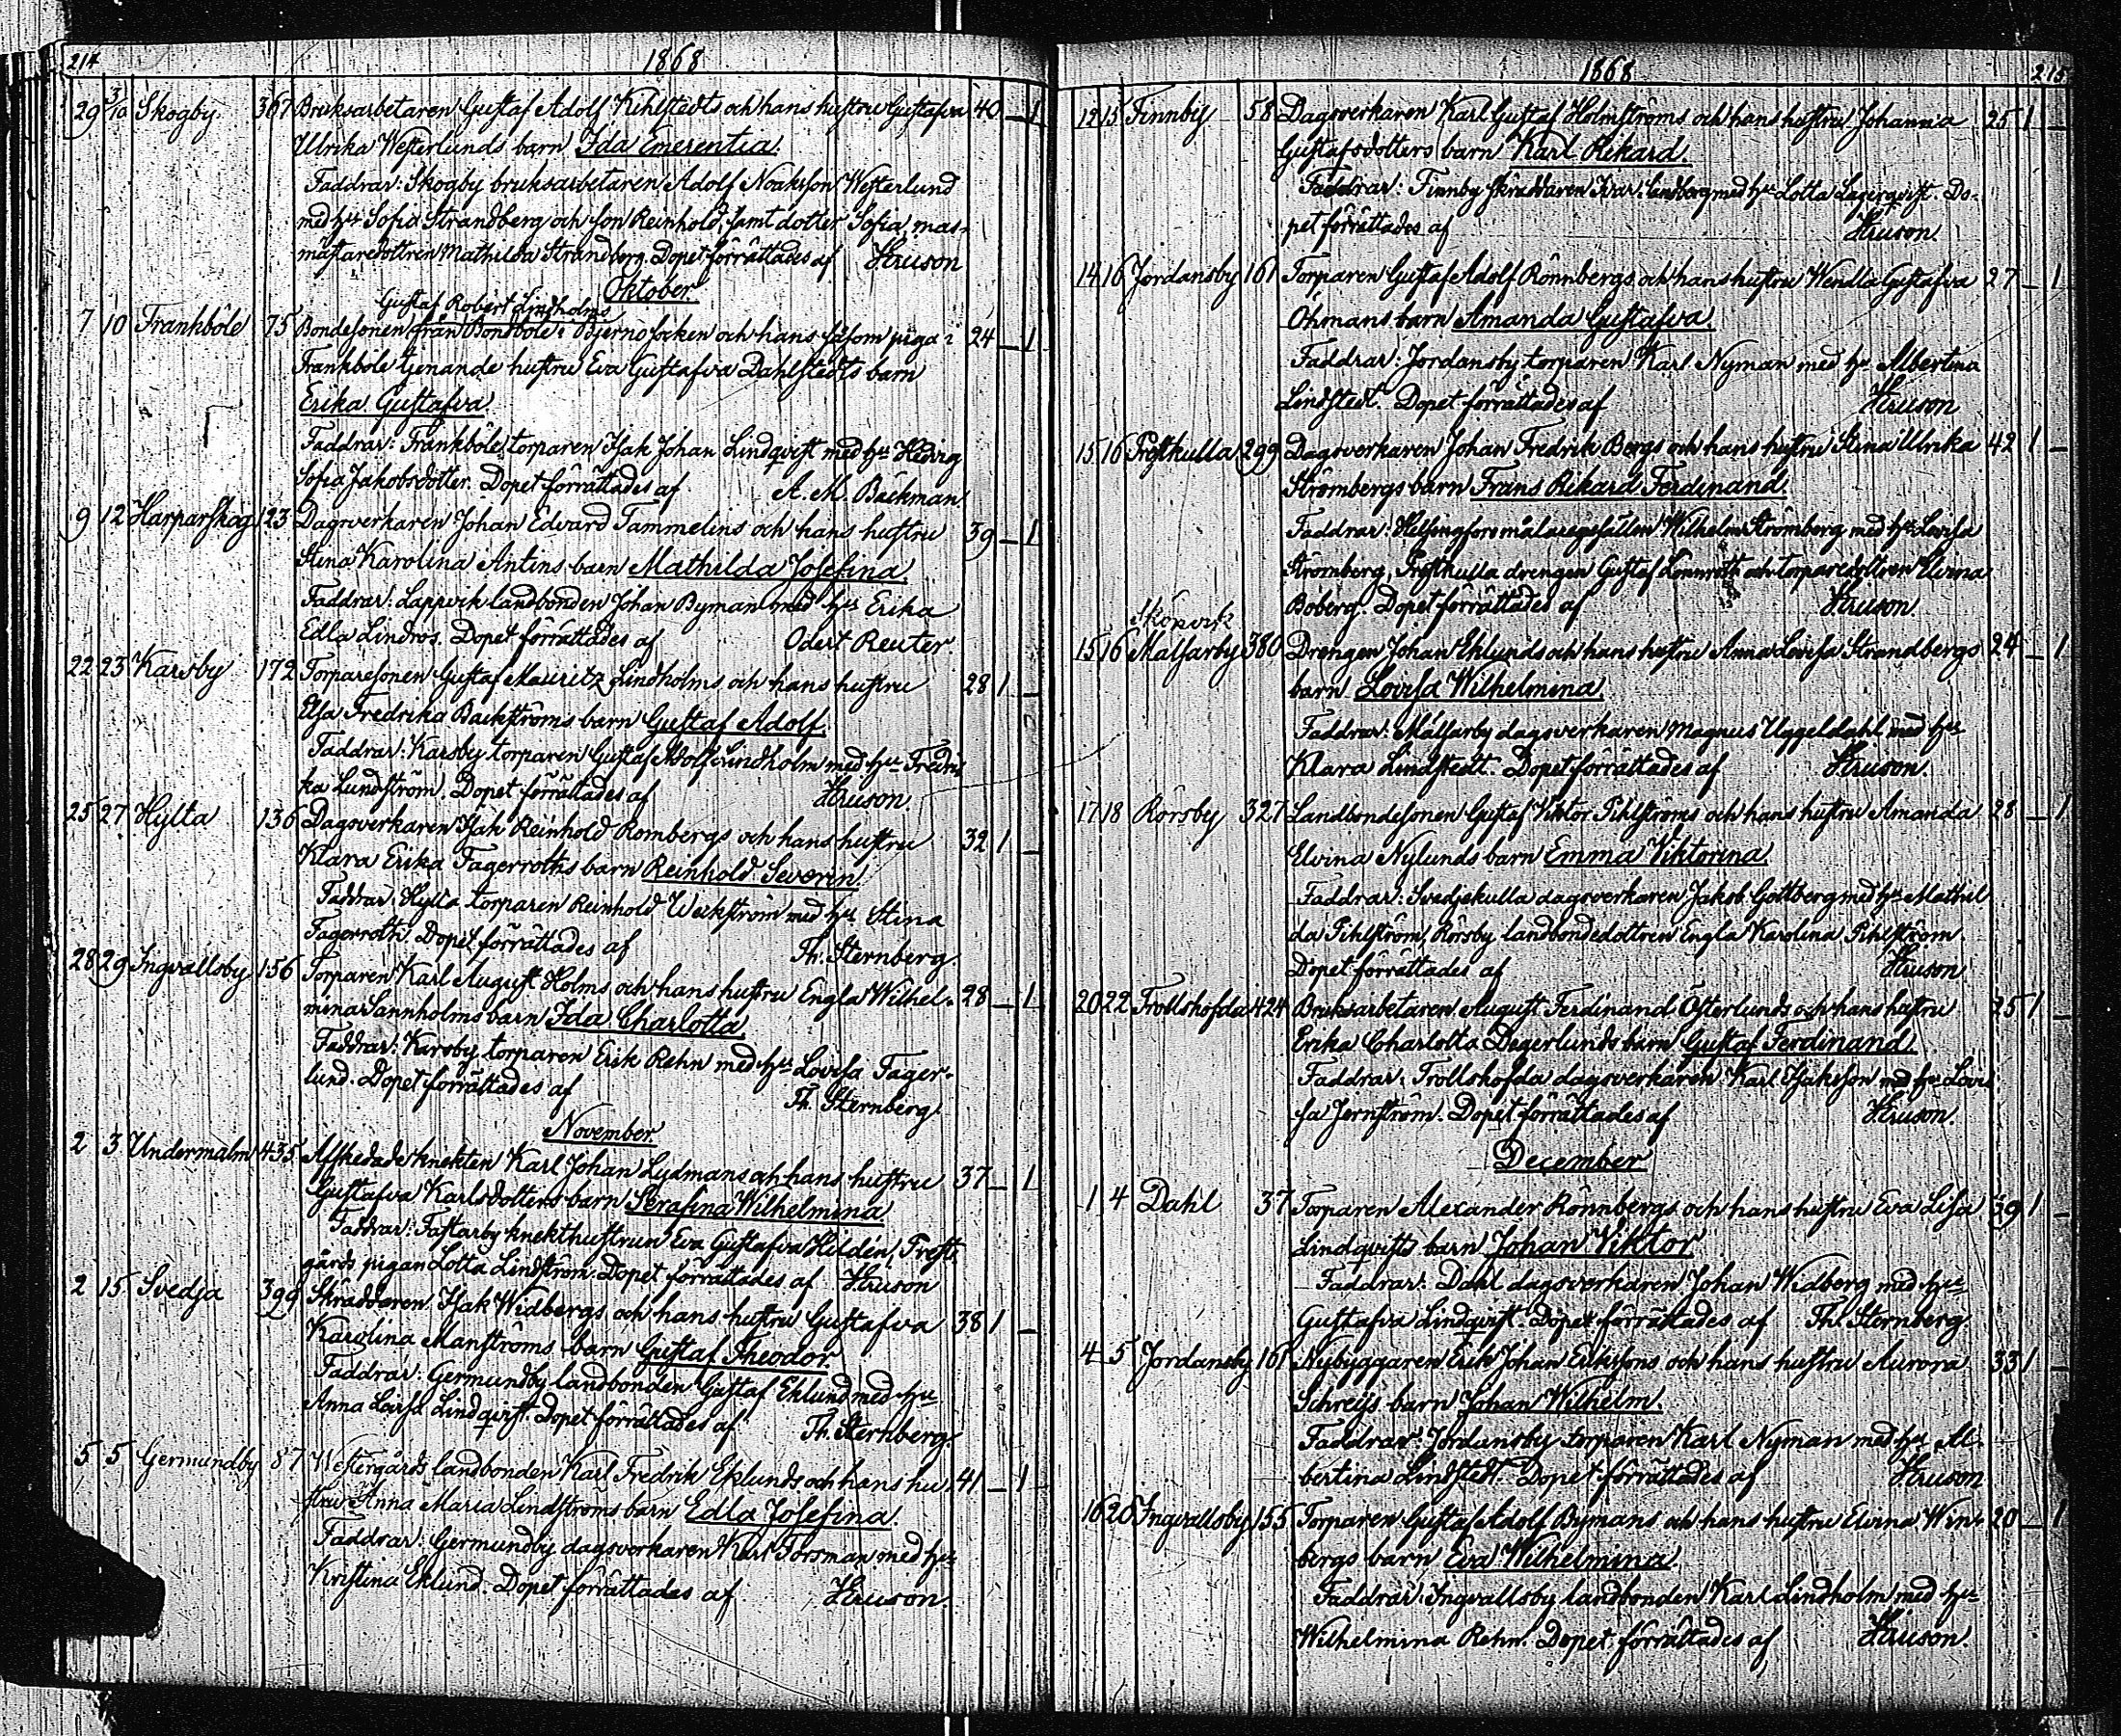 214
1868
29 3/10 Skogby 367 Bruksarbetaren Gustaf Adolf Kihlstedts och hans hustru Gustafva 40 — 1
Ulrika Westerlunds barn Ida Emerentia.
Faddrar: Skogby bruksarbetaren Adolf Noaksson Westerlund
med hu Sofia Strandberg och son Reinhold, samt dotter Sofia, mas-
mästaredottren Mathilda Strandberg. Dopet förrättades af Hruson
Oktober.
Gustaf Robert Lindholms
7 10 Frankböle 75 Bondesonen från Bondböle i Bjerno socken och hans såsom piga i 24 — 1
Frankböle tjenande hustru Eva Gustafva Dahlstedts barn
Erika Gustafva.
Faddrar: Frankböle, torparen Isak Johan Lindqvist med hu Hedvig
Sofia Jakobsdotter. Dopet förrättades af A. M. Backman.
9 12 Harparskog 123 Dagsverkaren Johan Edvard Tammelins och hans hustru 39 — 1
Stina Karolina Antins barn Mathilda Josefina.
Faddrar: Lappvik landbonden Johan Byman med hu Erika
Edla Lindros. Dopet förrättades af Odert Reuter
22 23 Karsby 172 Torparesonen Gustaf Mauritz Lindholms och hans hustru 28 1 —
Elsa Fredrika Backströms barn Gustaf Adolf.
Faddrar: Karsby torparen Gustaf Adolf Lindholm med hu Fredri
ka Lundström. Dopet förrättades af Hruson.
25 27 Hylta 136 Dagsverkaren Isak Reinhold Rombergs och hans hustru 32 1 —
Klara Erika Fagerroths barn Reinhold Severin.
Faddrar: Hylta torparen Reinhold Weckström med hu Stina
Fagerroth. Dopet förrättades af Th. Sternberg.
28 29 Ingvallsby 156 Torparen Karl August Holms och hans hustru Engla Wilhel- 28 — 1
mina Sannholms barn Ida Charlotta.
Faddrar: Karsby torparen Erik Rehn med hu Lovisa Fager-
lund. Dopet förrättades af Th. Sternberg.
November.
2 3 Undermalm 435 Afskedade knekten Karl Johan Lydmans och hans hustru 37 — 1
Gustafva Karlsdotters barn Serafina Wilhelmina.
Faddrar: Fastarby knekthustrun Eva Gustafva Hildén, Prest-
gårds pigan Lotta Lindström. Dopet förrättades af Hruson
2 15 Svedja 399 Skräddaren Isak Widbergs och hans hustru Gustafva 38 1 —
Karolina Manströms barn Gustaf Theodor.
Faddrar: Germundby landbonden Gustaf Eklund med hu
Anna Lovisa Lindqvist. Dopet förrättades af Th. Sternberg.
5 5 Germundby 87 Westergårds landbonden Karl Fredrik Eklunds och hans hu- 41 — 1
stru Anna Maria Lindströms barn Edla Josefina.
Faddrar: Germundby dagsverkaren Karl Forsman med hu
Kristina Eklund. Dopet förrättades af Hruson.
1868
215
12 15 Finnby 58 Dagsverkaren Karl Gustaf Holmströms och hans hustru Johanna 25 1 —
Gustafsdotters barn Karl Rikard.
Faddrar: Finnby skräddaren Ivar Lindberg med hu Lotta Lagerqvist. Do-
pet förrättades af Hruson.
14 16 Jordansby 161 Torparen Gustaf Adolf Rönnbergs och hans hustru Wendla Gustafva 27 — 1
Öhmans barn Amanda Gustafva.
Faddrar: Jordansby torparen Karl Nyman med hu Albertina
Lindstedt. Dopet förrättades af Hruson
15 16 Prestkulla 299 Dagsverkaren Johan Fredrik Bergs och hans hustru Stina Ulrika 42 1 —
Strömbergs barn Frans Rikard Ferdinand.
Faddrar: Helsingfors målaregesällen Wilhelm Strömberg med hu Lovisa
Strömberg, Prestkulla drengen Gustaf Lönnroth och torparedottren Elvina
Boberg. Dopet förrättades af Hruson.
Sköpvik
15 16 Malsarby 380 Drengen Johan Eklunds och hans hustru Anna Lovisa Strandbergs 24 — 1
barn Lovisa Wilhelmina.
Faddrar: Malsarby dagsverkaren Magnus Uggeldahl med hu
Klara Lindstedt. Dopet förrättades af Hruson.
17 18 Rörsby 327 Landbondesonen Gustaf Viktor Pihlströms och hans hustru Amanda 28 — 1
Elvina Nylunds barn Emma Viktorina.
Faddrar: Svedjekulla dagsverkaren Jakob Gottberg med hu Mathil
da Pihlström, Rörsby landbondedottren Engla Karolina Pihlström.
Dopet förrättades af Hruson
20 22 Trollshofda 424 Bruksarbetaren August Ferdinand Österlunds och hans hustru 25 1 —
Erika Charlotta Degerlunds barn Gustaf Ferdinand.
Faddrar: Trollshofda dagsverkaren Karl Isaksson med hu Lovi
sa Jernström. Dopet förrättades af Hruson.
December
1 4 Dahl 37 Torparen Alexander Rönnbergs och hans hustru Eva Lisa 39 1
Lindqvists barn Johan Viktor
Faddrar: Dahl dagsverkaren Johan Widberg med hu
Gustafva Lindqvist. Dopet förrättades af Th. Sternberg.
4 5 Jordansby 161 Nybyggaren Erik Johan Erikssons och hans hustru Aurora 33 1 —
Schreijs barn Johan Wilhelm.
Faddrar: Jordansby torparen Karl Nyman med hu Al-
bertina Lindstedt. Dopet förrättades af Hruson
16 20 Ingvallsby 155 Torparen Gustaf Adolf Bymans och hans hustru Elvina Win- 20 — 1
bergs barn Eva Wilhelmina.
Faddrar: Ingvallsby landbonden Karl Lindholm med hu
Wilhelmina Rehn. Dopet förrättades af Hruson.